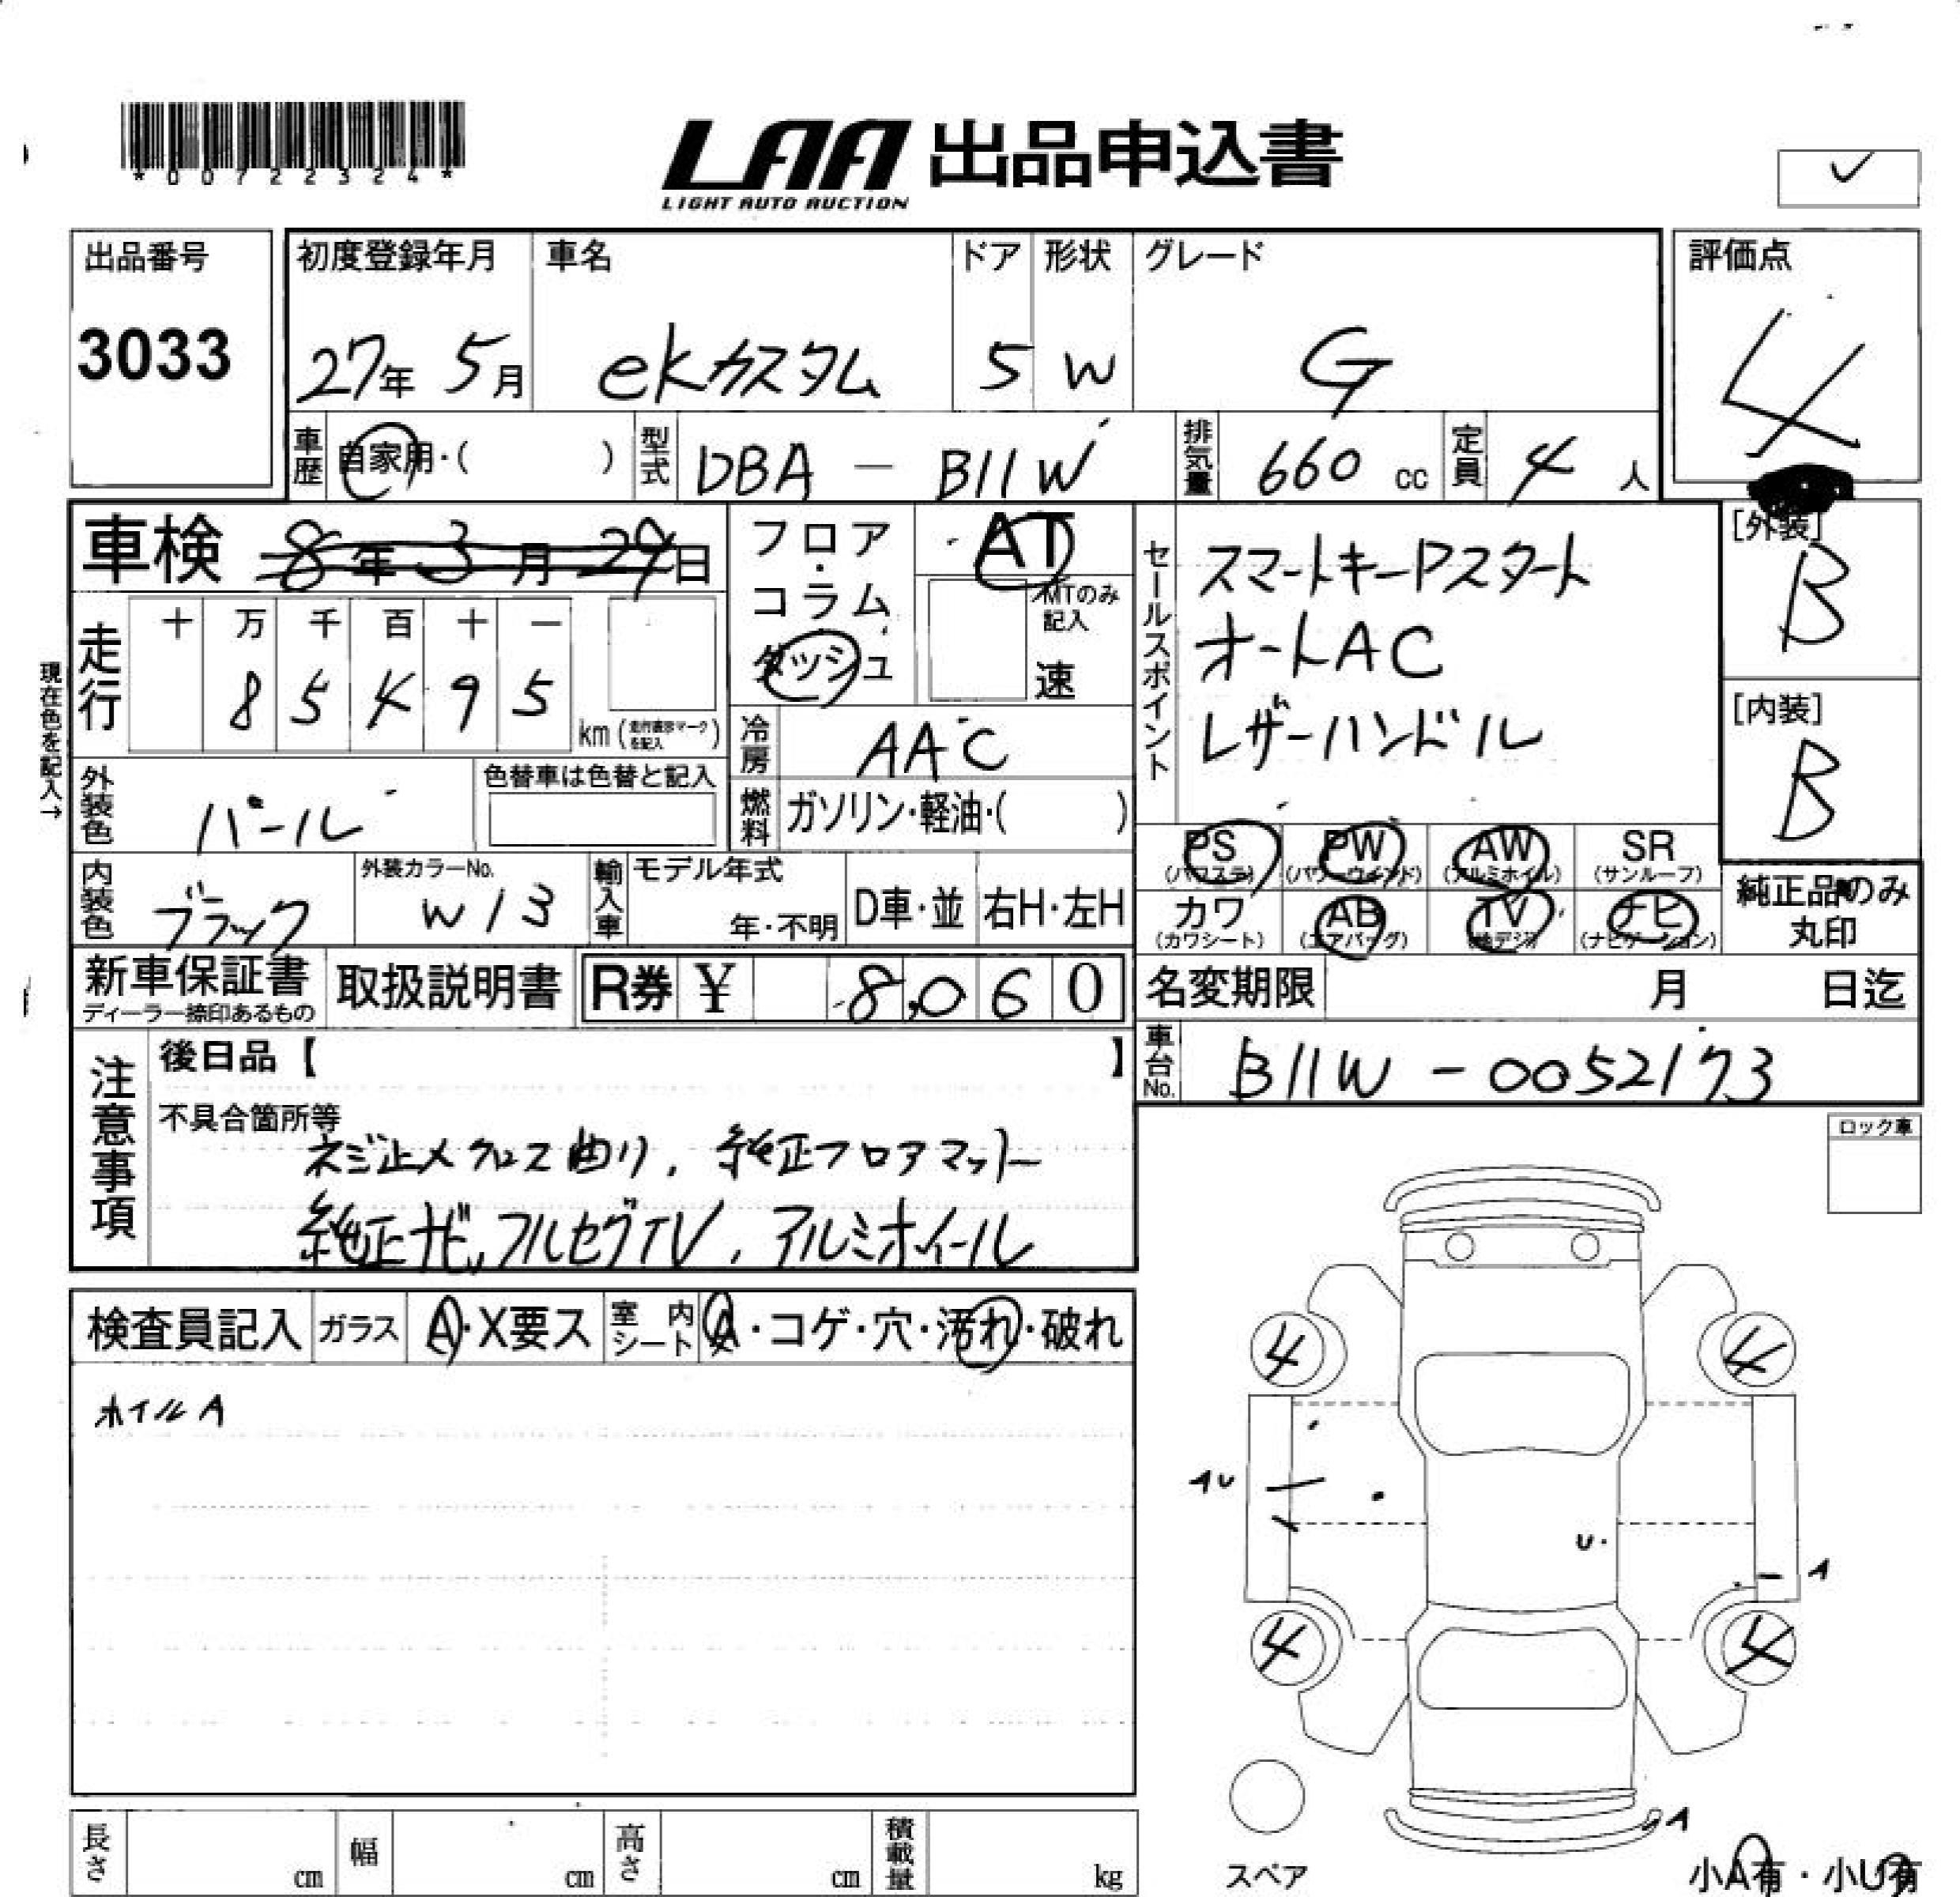 *00722324*
LAA 出品申込書
LIGHT AUTO AUCTION
出品番号
3033
初度登録年月
27年 5月
車名
ekカスタム
ドア
5
形状
W
グレード
G
評価点
4
車歴
自家用・( )
型式
DBA - B11W
排気量
660 cc
定員
4 人
車検 8年 3月 29日
走行
十 万 千 百 十 一
8 5 4 9 5
km(走行表示マークを記入)
現在色を記入→
フロア・コラム
ダッシュ
AT
MTのみ記入
速
セールスポイント
スマートキーPスタート
オートAC
レザーハンドル
[外装]
B
[内装]
B
外装色
パール
色替車は色替と記入
冷房
AAC
燃料
ガソリン・軽油・( )
内装色
ブラック
外装カラーNo.
W13
輸入車
モデル年式
年・不明
D車・並
右H・左H
PS
(パワステ)
PW
(パワーウインド)
AW
(アルミホイル)
SR
(サンルーフ)
カワ
(カワシート)
AB
(エアバッグ)
TV
(地デジ)
ナビ
(ナビゲーション)
純正品のみ
丸印
新車保証書
ディーラー捺印あるもの
取扱説明書
R券 ¥ 8,060
名変期限 月 日迄
車台No.
B11W-0052173
注意事項
後日品【 】
不具合箇所等
ネジ止メクロス曲り, 純正フロアマット
純正ナビ,フルセグTV, アルミホイール
ロック車
検査員記入
ガラス
A・X要ス
室内シート
A・コゲ・穴・汚れ・破れ
ホイルA
4
4
AU
U
A
4
4
A
スペア
小A有・小U有
長さ cm
幅 cm
高さ cm
積載量 kg